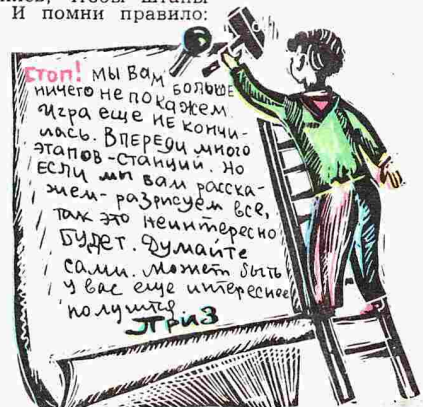 чтобы штаны
И помни правило:
СТОП! МЫ ВАМ БОЛЬШЕ
НИЧЕГО НЕ ПОКАЖЕМ.
ИГРА ЕЩЕ НЕ КОНЧИ-
ЛАСЬ. ВПЕРЕДИ МНОГО
ЭТАПОВ-СТАНЦИЙ. НО
ЕСЛИ МЫ ВАМ РАССКА-
ЖЕМ-РАЗРИСУЕМ ВСЕ,
ТАК ЭТО НЕИНТЕРЕСНО
БУДЕТ. ДУМАЙТЕ
САМИ. МОЖЕТ БЫТЬ
У ВАС ЕЩЕ ИНТЕРЕСНЕЕ
ПОЛУЧИТСЯ
ПРИЗ